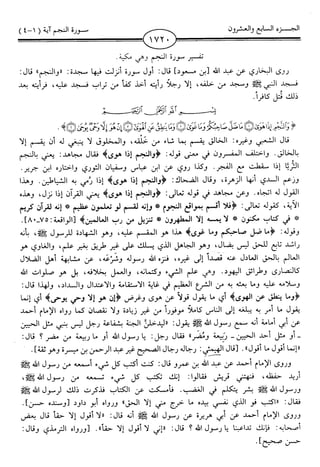 الجـــزء السابع والعشرون
١٧٢٠
سورة النجم آية (١-٤)
تفسير سورة النجم وهي مكية.
روى البخاري عن عبد الله [بن مسعود] قال: أول سورة أنزلت فيها سجدة: «والنجم» قال:
فسجد النبي ﷺ وسجد من خلفه، إلا رجلاً رأيته أخذ كفاً من تراب فسجد عليه، فرأيته بعد
ذلك قُتل كافراً.
بسم الله الرحمن الرحيم
﴿وَالنَّجْمِ إِذَا هَوَى ۝ مَا ضَلَّ صَاحِبُكُمْ وَمَا غَوَى ۝ وَمَا يَنطِقُ عَنِ الْهَوَى ۝ إِنْ هُوَ إِلَّا وَحْيٌ يُوحَى ۝﴾.
قال الشعبي وغيره: الخالق يقسم بما شاء من خَلْقه، والمخلوق لا ينبغي له أن يقسم إلا
بالخالق. واختلف المفسرون في معنى قوله: ﴿والنجم إذا هوى﴾ فقال مجاهد: يعني بالنجم
الثُريَّا إذا سقطت مع الفجر. وكذا روي عن ابن عباس وسفيان الثوري واختاره ابن جرير.
وزعم السدي أنها الزهرة، وقال الضحاك: ﴿والنجم إذا هوى﴾ إذا رُمي به الشياطين. وهذا
القول له اتجاه. وعن مجاهد في قوله تعالى: ﴿والنجم إذا هوى﴾ يعني القرآن إذا نزل، وهذه
الآية، كقوله تعالى: ﴿فلا أقسم بمواقع النجوم * وإنه لقسم لو تعلمون عظيم * إنه لقرآن كريم
* في كتاب مكنون * لا يمسه إلا المطهرون * تنزيل من رب العالمين﴾ [الواقعة: ٧٥-٨٠].
وقوله: ﴿ما ضل صاحبكم وما غوى﴾ هذا هو المقسم عليه، وهو الشهادة للرسول ﷺ، بأنه
راشد تابع للحق ليس بضال، وهو الجاهل الذي يسلك على غير طريق بغير علم، والغاوي هو
العالم بالحق العادل عنه قصداً إلى غيره، فنزه الله رسوله وشَرْعَه، عن مشابهة أهل الضلال
كالنصارى وطرائق اليهود. وهي علم الشيء وكتمانه، والعمل بخلافه، بل هو صلوات الله
وسلامه عليه وما بعثه به من الشرع العظيم في غاية الاستقامة والاعتدال والسداد، ولهذا قال:
﴿وما ينطق عن الهوى﴾ أي ما يقول قولاً عن هوى وغرض ﴿إن هو إلا وحي يوحى﴾ أي إنما
يقول ما أمر به يبلغه إلى الناس كاملاً موفوراً من غير زيادة ولا نقصان كما رواه الإمام أحمد
عن أبي أمامة أنه سمع رسول الله ﷺ يقول: «ليدخلنّ الجنة بشفاعة رجل ليس بنبي مثل الحيين
- أو مثل أحد الحيين - ربيعة ومُضَر» فقال رجل: يا رسول الله أو ما ربيعة من مضر؟ قال:
«إنما أقول ما أقول». [قال الهيثمي: رجاله رجال الصحيح غير عبد الرحمن بن ميسرة وهو ثقة].
وروى الإمام أحمد عن عبد الله بن عمرو قال: كنت أكتب كل شيء أسمعه من رسول الله ﷺ
أريد حفظه، فنهتني قريش فقالوا: إنك تكتب كل شيء تسمعه من رسول الله ﷺ،
ورسول الله ﷺ بشر يتكلم في الغضب. فأمسكت عن الكتاب فذكرت ذلك لرسول الله ﷺ
فقال: «اكتب فو الذي نفسي بيده ما خرج مني إلا الحق» ورواه أبو داود [وسنده حسن].
وروى الإمام أحمد عن أبي هريرة عن رسول الله ﷺ أنه قال: «لا أقول إلا حقاً» قال بعض
أصحابه: فإنك تداعبنا يا رسول الله؟ قال: «إني لا أقول إلا حقاً». [ورواه الترمذي وقال:
حسن صحيح].